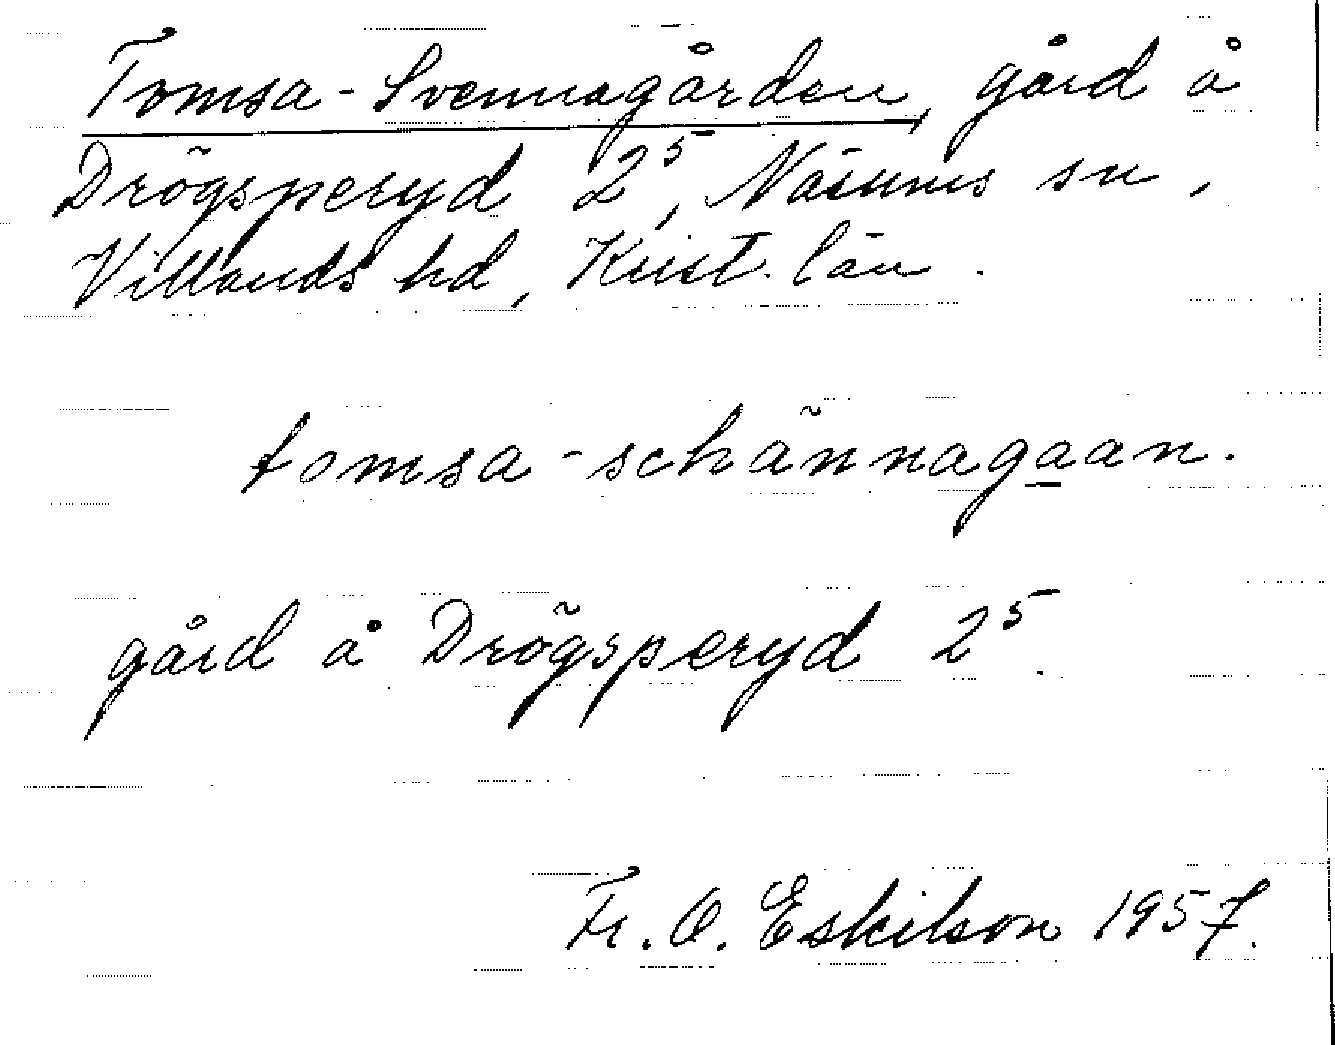 Tomsa-Svennagården, gård å
Drögsperyd 2⁵, Näsums sn,
Villands hd, Krist. län.
tomsa-schännagaan.
gård å Drögsperyd 2⁵.
Fr. O. Eskilson 1957.